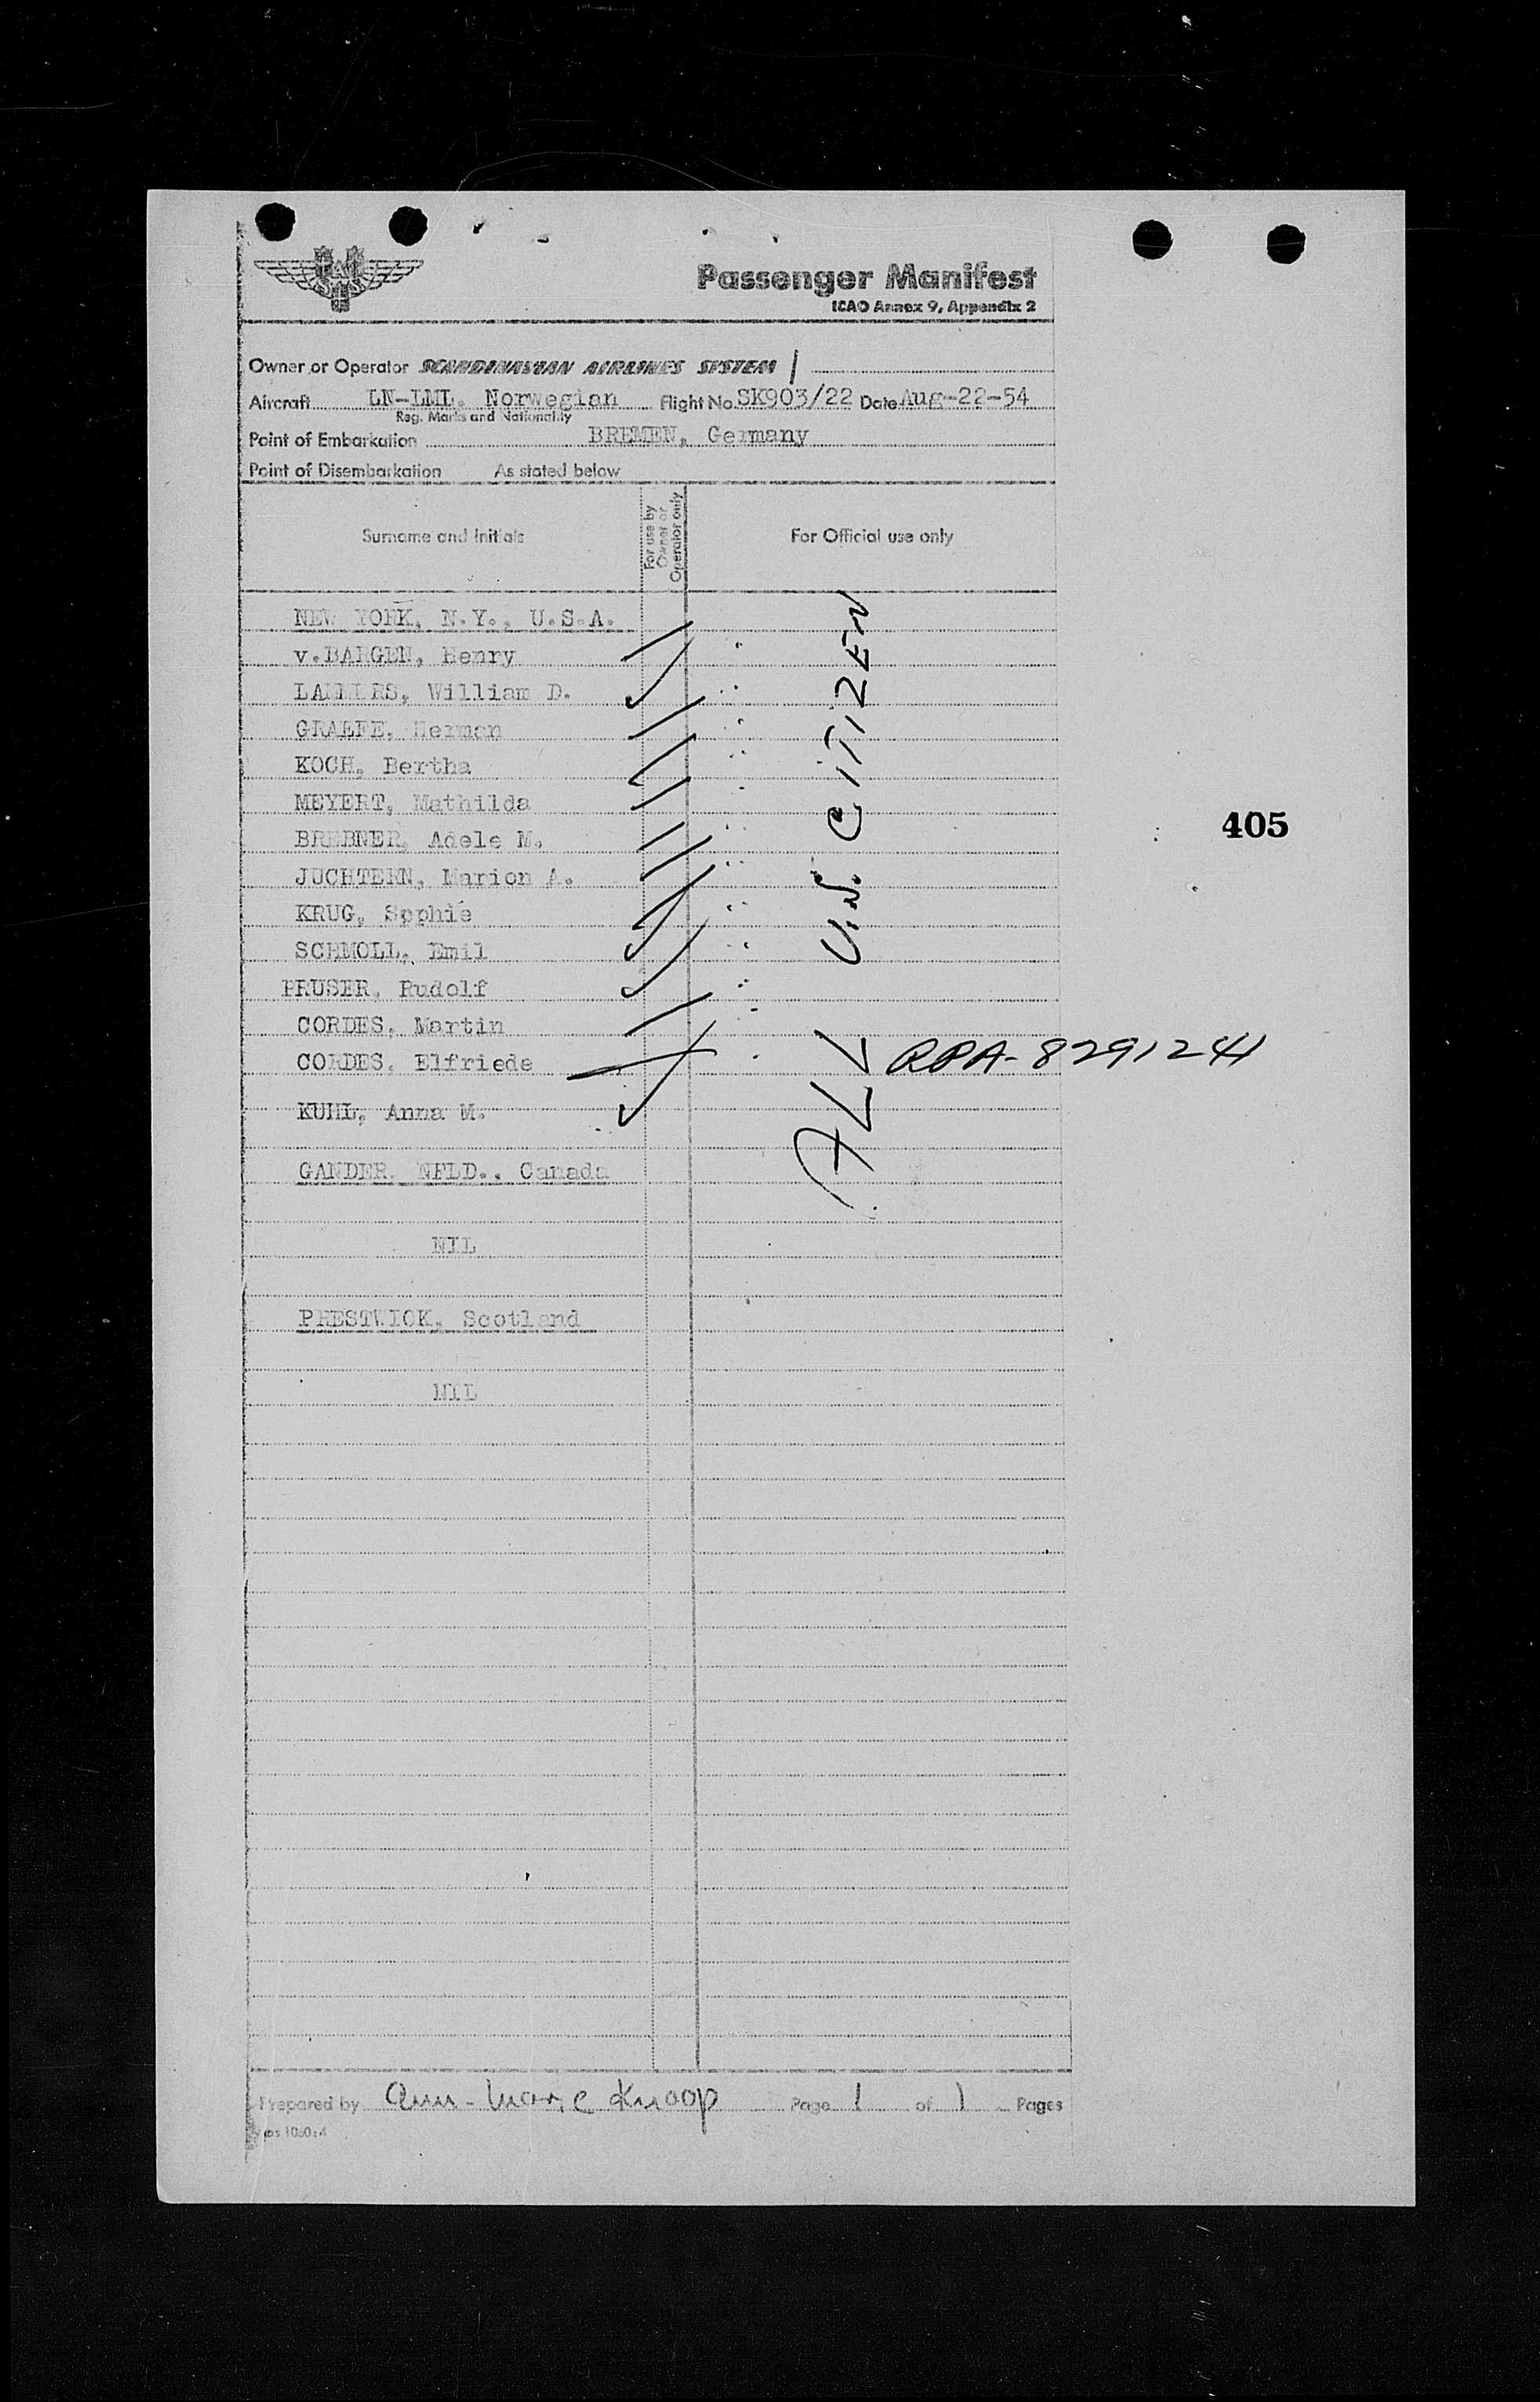 Passenger Manifest
ICAO Annex 9, Appendix 2
Owner or Operator SCANDINAVIAN AIRLINES SYSTEM
Aircraft LN-LML. Norwegian Flight No. SK903/22 Date Aug-22-54
Reg. Marks and Nationality
Point of Embarkation BREMEN, Germany
Point of Disembarkation As stated below
Surname and Initials
For use by Owner or Operator only
For Official use only
NEW YORK, N.Y., U.S.A.
v.BARGEN, Henry
William D.
GRAEFE, Herman
KOCH, Bertha
MEYERT, Mathilda
BREBNER, Adele M.
JUCHTERN, Marion A.
KRUG, Sophie
SCHMOLL, Emil
PRUSER, Rudolf
CORDES, Martin
CORDES, Elfriede
KUHL, Anna M.
ALL U.S. CITIZEN
RPA-8291241
405
GANDER, NFLD., Canada
NIL
PRESTWICK, Scotland
NIL
Prepared by Ann-Marie Knoop Page 1 of 1 Pages